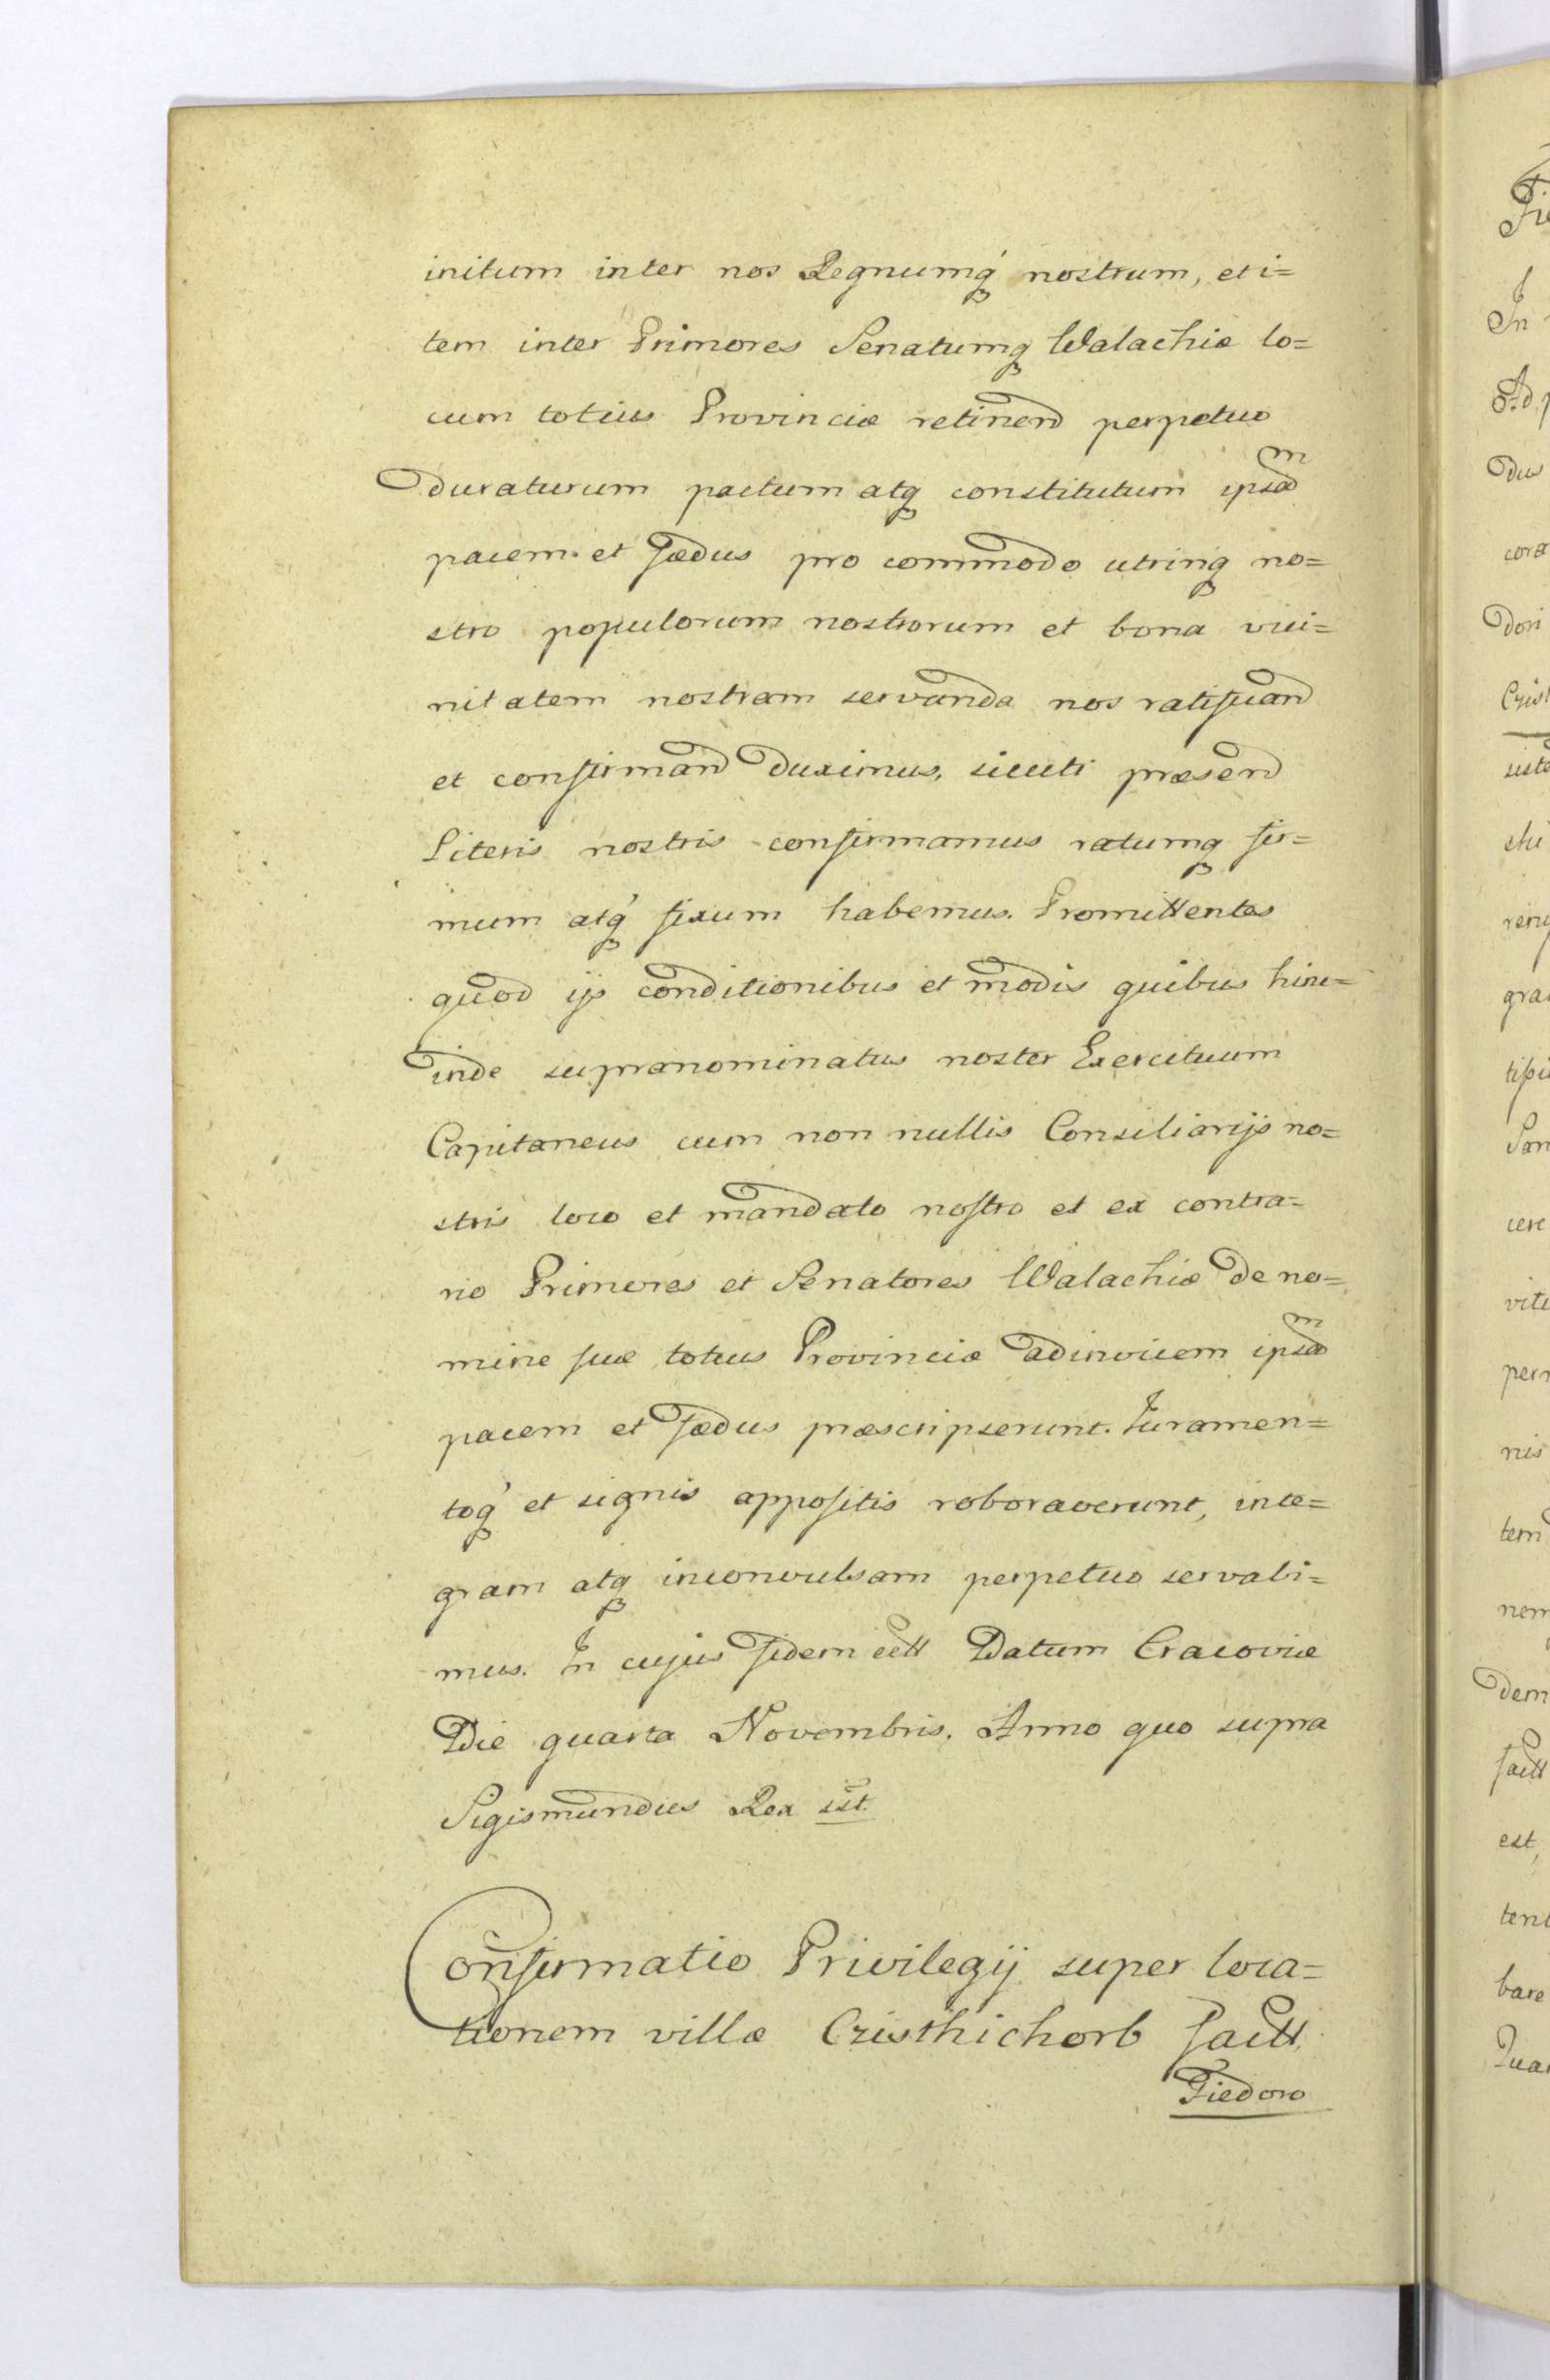 initum inter nos Regnumq́ nostrum, et i=
tem inter Primores Senatumq Walachiæ lo=
cum totius Provinciæ retinend perpetuo
duraturum pactum atq constitutum ipsam
pacem et fædus pro commodo utrinq no=
stro populorum nostrorum et bona vici=
nitatem nostram servanda nos ratificand
et confirmand duximus, sicuti præsend
Literis nostris confirmamus ratumq fir=
mum atq́ fixum habemus. Promittentes
quod ijs conditionibus et modis quibus hinc=
inde supranominatus noster Exercituum
Capitaneus cum non nullis Consiliarijs no=
stris loco et mandato nostro et ex contra=
rio Primores et Senatores Walachiæ de no=
mine suæ totius Provinciæ adinvicem ipsam
pacem et fædus præscripserunt. Juramen=
toq́ et signis appositis roboraverunt, inte=
gram atq inconvulsam perpetuo servabi=
mus. In cujus fidem ett Datum Cracoviæ
Die quarta Novembris. Anno quo supra
Sigismundus Rex sst.
Confirmatio Privilegij super loca=
tionem villæ Cristhichorb factt.
Fiedoro
Fie
In
Ad p
dus
coræ
dori
Crist
siste
shi
gra
San
cere
per
nis
tem
nem
dem
factt
est,
tent
bare
Qua